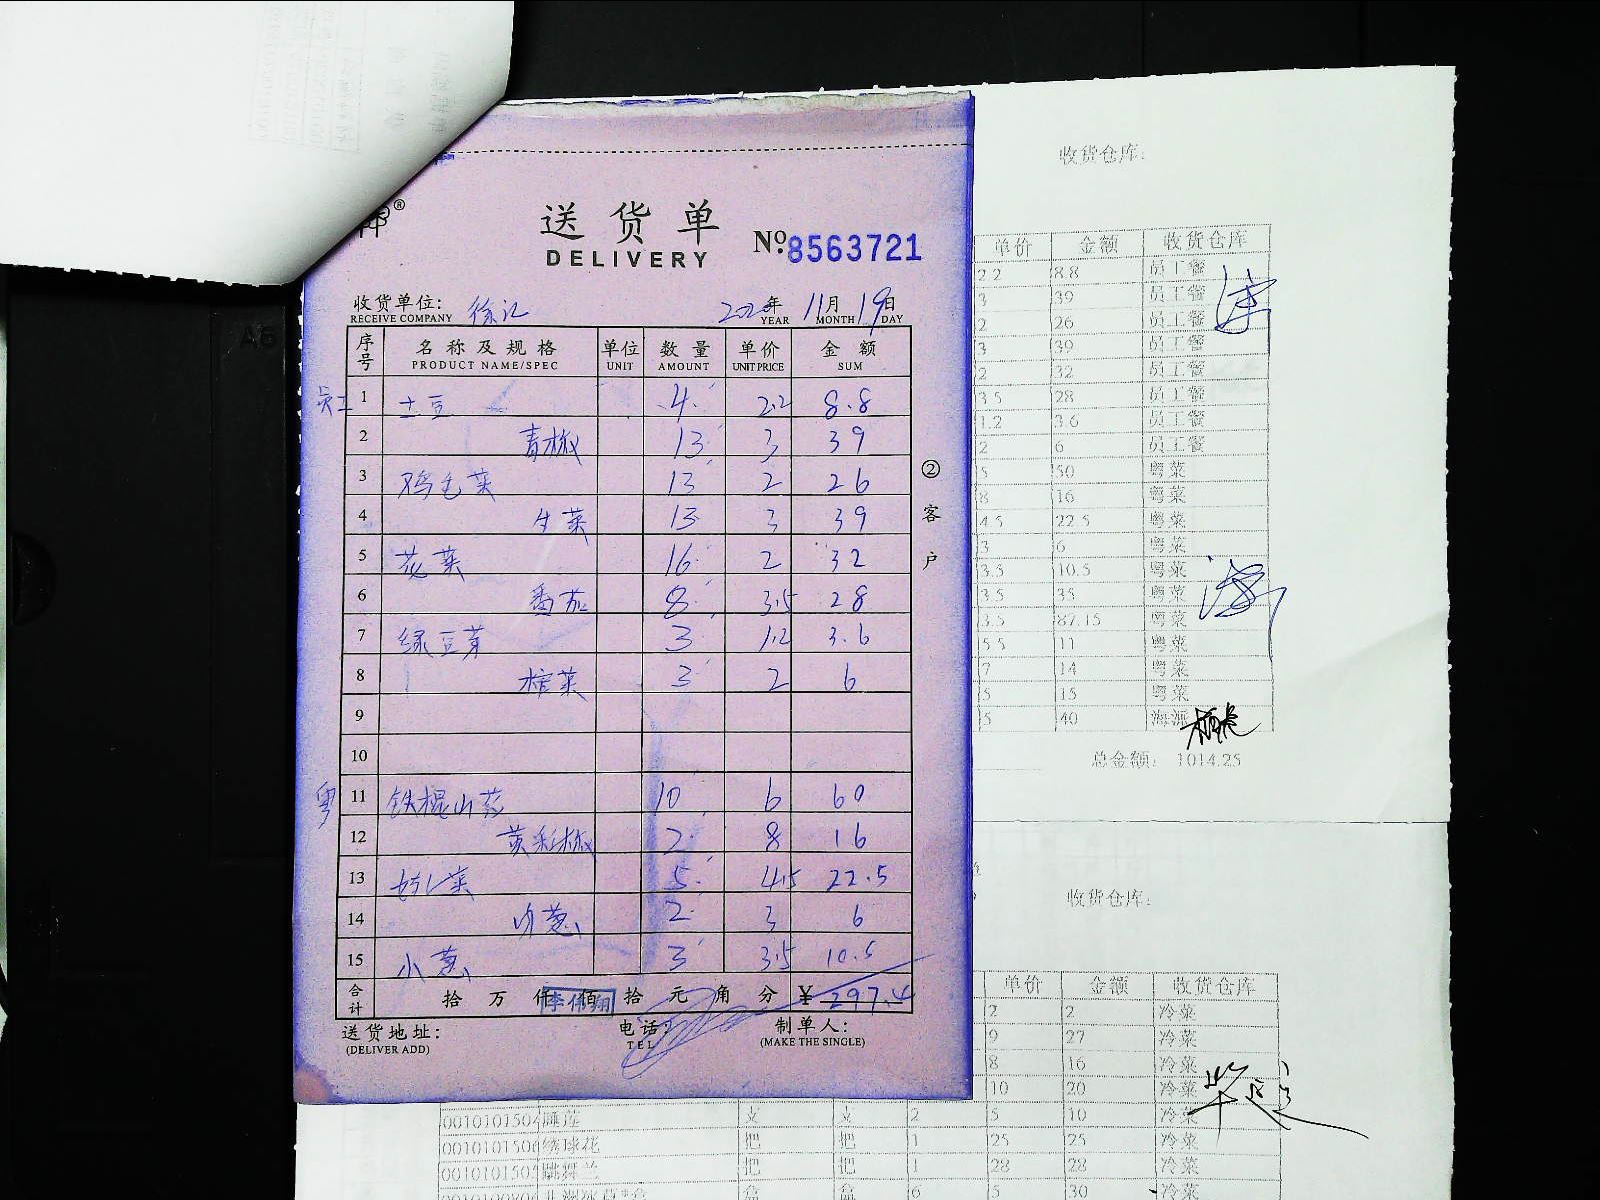 送货单
DELIVERY
№:8563721
收货单位: 徐汇
RECEIVE COMPANY
2020年 11月 19日
YEAR MONTH DAY
序号 名称及规格 单位 数量 单价 金额
PRODUCT NAME/SPEC UNIT AMOUNT UNIT PRICE SUM
员工 1 土豆 4 2.2 8.8
2 青椒 13 3 39
3 鸡毛菜 13 2 26
4 生菜 13 3 39
5 花菜 16 2 32
6 番茄 8 3.5 28
7 绿豆芽 3 1.2 3.6
8 榨菜 3 2 6
9
10
粤 11 铁棍山药 10 6 60
12 黄彩椒 2 8 16
13 5 4.5 22.5
14 2 3 6
15 小葱 3 3.5 10.5
合计 拾 万 仟 佰 拾 元 角 分 ¥ 297.4
李伟翔
送货地址: 电话: 制单人:
(DELIVER ADD) TEL (MAKE THE SINGLE)
②客户
收货仓库:
单价 金额 收货仓库
2.2 8.8 员工餐
3 39 员工餐
2 26 员工餐
3 39 员工餐
2 32 员工餐
3.5 28 员工餐
1.2 3.6 员工餐
2 6 员工餐
5 50 粤菜
8 16 粤菜
4.5 22.5 粤菜
3 6 粤菜
3.5 10.5 粤菜
3.5 35 粤菜
3.5 87.15 粤菜
5.5 11 粤菜
7 14 粤菜
5 15 粤菜
5 40 海派
总金额: 1014.25
收货仓库:
单价 金额 收货仓库
2 2 冷菜
9 27 冷菜
8 16 冷菜
10 20 冷菜
睡莲 支 支 2 5 10 冷菜
绣球花 把 把 1 25 25 冷菜
跳舞兰 把 把 1 28 28 冷菜
盒 盒 6 5 30 冷菜